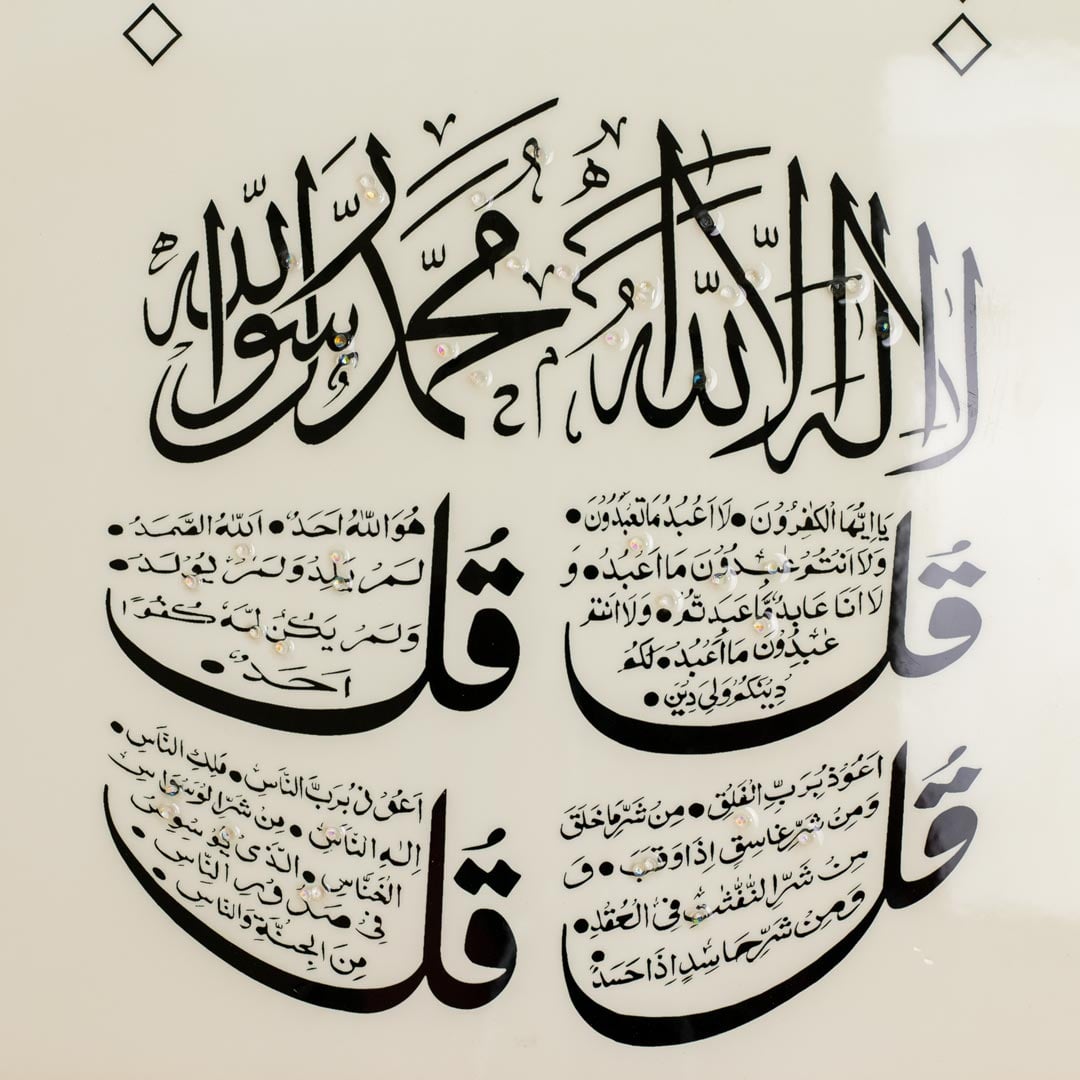 لا اله الا الله محمد رسول الله
قل
يا ايها الكفرون • لا اعبد ما تعبدون •
ولا انتم عبدون ما اعبد • و
لا انا عابد ما عبدتم • ولا انتم
عبدون ما اعبد • لكم
دينكم ولي دين •
قل
هو الله احد • الله الصمد •
لم يلد ولم يولد •
ولم يكن له كفوا
احد •
قل
اعوذ برب الفلق • من شر ما خلق
ومن شر غاسق اذا وقب • و
من شر النفثت في العقد •
ومن شر حاسد اذا حسد •
قل
اعوذ برب الناس • ملك الناس •
اله الناس • من شر الوسواس
الخناس • الذي يوسوس
في صدور الناس •
من الجنة والناس •